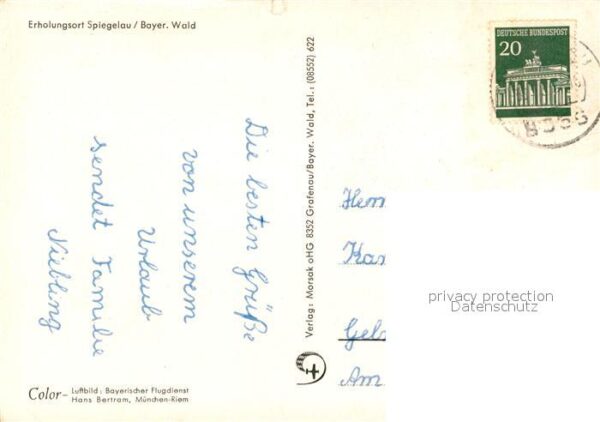 Erholungsort Spiegelau / Bayer. Wald
Die besten Grüße
von unserem
Urlaub
sendet Familie
Niebling
Color-
Luftbild: Bayerischer Flugdienst
Hans Bertram, München-Riem
Verlag: Morsak oHG 8352 Grafenau/Bayer. Wald, Tel.: (08552) 622
DEUTSCHE BUNDESPOST
20
Geb
Am
privacy protection
Datenschutz